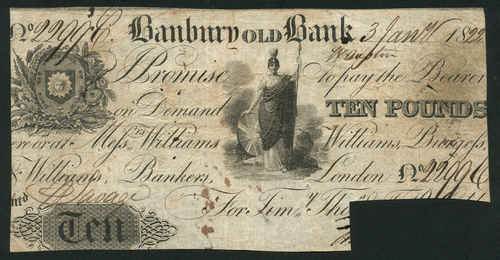 No 22996 Banbury OLD Bank 3 Jany 1822
I Promise to pay the Bearer
on Demand TEN POUNDS
ere or at Messrs Williams Williams, Burgess,
& Williams, Bankers, London No 22996
For Timy Tho
Ten